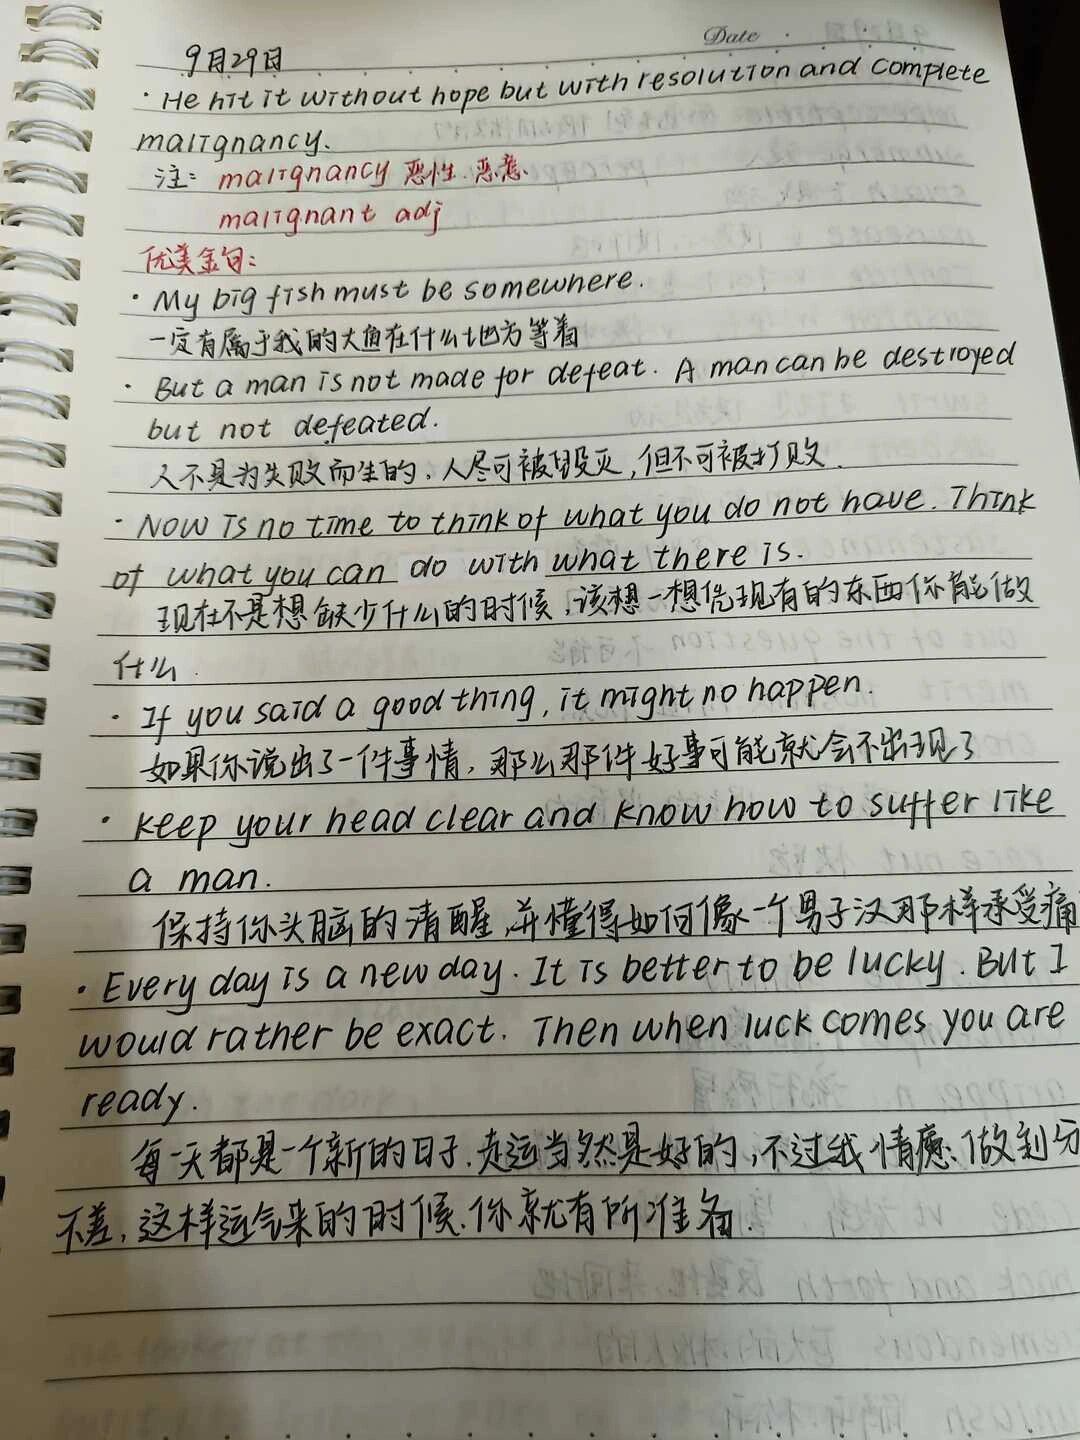 Date
9月29日
· He hit it without hope but with resolution and complete
malignancy.
注: malignancy 恶性、恶意.
malignant adj
优美金句:
· My big fish must be somewhere.
一定有属于我的大鱼在什么地方等着
· But a man is not made for defeat. A man can be destroyed
but not defeated.
人不是为失败而生的,人尽可被毁灭,但不可被打败.
· Now is no time to think of what you do not have. Think
of what you can do with what there is.
现在不是想缺少什么的时候,该想一想凭现有的东西你能做
什么.
· If you said a good thing, it might no happen.
如果你说出了一件事情,那么那件好事可能就会不出现了
· keep your head clear and know how to suffer like
a man.
保持你头脑的清醒,并懂得如何像一个男子汉那样承受痛
· Every day is a new day. It is better to be lucky. But I
would rather be exact. Then when luck comes you are
ready.
每一天都是一个新的日子.走运当然是好的,不过我情愿做到分
不差,这样运气来的时候.你就有所准备.